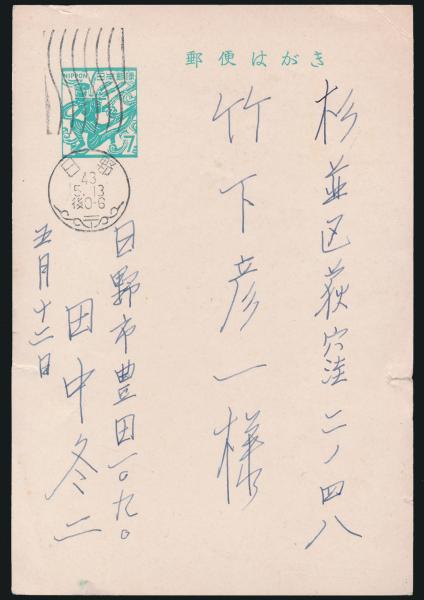 郵便はがき
NIPPON 日本郵便
7
日野
43
5.13
後0-6
杉並区荻窪二ノ四八
竹下彦一様
日野市豊田一〇九〇
田中冬二
五月十二日